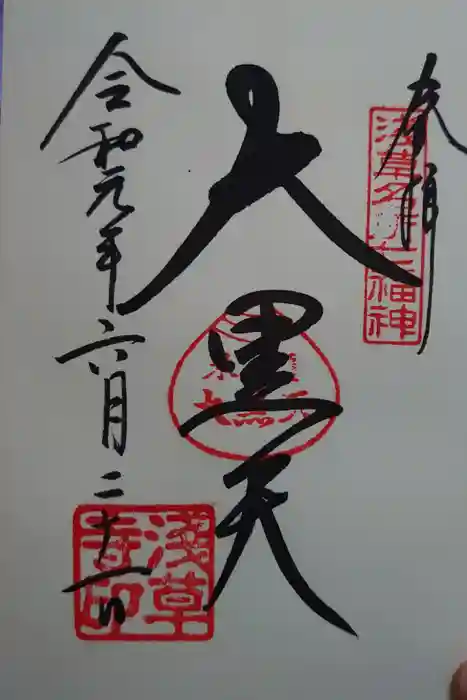 奉拝
浅草名所七福神
大黒天
令和元年六月二十一日
浅草寺印